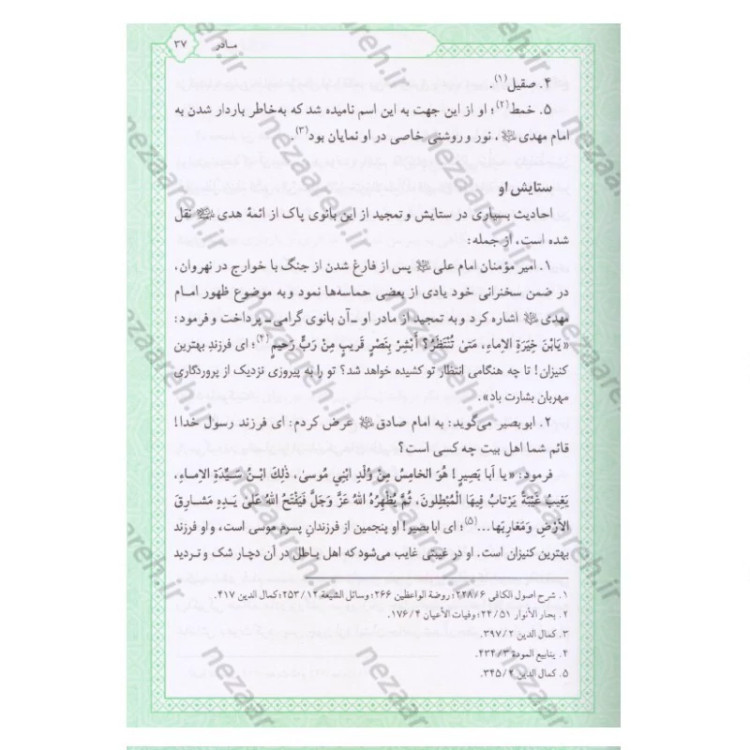 مادر ۳۷
۴. صقیل(۱).
۵. خمط(۲)؛ او از این جهت به این اسم نامیده شد که به‌خاطر باردار شدن به
امام مهدی، نور و روشنی خاصی در او نمایان بود(۳).
ستایش او
احادیث بسیاری در ستایش و تمجید از این بانوی پاک از ائمهٔ هدی نقل
شده است، از جمله:
۱. امیر مؤمنان امام علی پس از فارغ شدن از جنگ با خوارج در نهروان،
در ضمن سخنرانی خود یادی از بعضی حماسه‌ها نمود و به موضوع ظهور امام
مهدی اشاره کرد و به تمجید از مادر او ـ آن بانوی گرامی ـ پرداخت و فرمود:
«یَابْنَ خِیَرَةِ الإماءِ، مَتیٰ تُنْتَظَرُ؟ أَبْشِرْ بِنَصْرٍ قَریبٍ مِنْ رَبٍّ رَحیمٍ(۴)؛ ای فرزندِ بهترین
کنیزان! تا چه هنگامی انتظار تو کشیده خواهد شد؟ تو را به پیروزی نزدیک از پروردگاری
مهربان بشارت باد».
۲. ابو بصیر می‌گوید: به امام صادق عرض کردم: ای فرزند رسول خدا!
قائم شما اهل بیت چه کسی است؟
فرمود: «یا أبا بَصیرٍ! هُوَ الخامِسُ مِنْ وُلْدِ ابْنِی مُوسیٰ، ذٰلِكَ ابْنُ سَیِّدَةِ الإماءِ،
یَغیبُ غَیْبَةً یَرْتابُ فیهَا الْمُبْطِلُونَ، ثُمَّ یُظْهِرُهُ اللهُ عَزَّ وَجَلَّ فَیَفْتَحُ اللهُ عَلیٰ یَدِهِ مَشارِقَ
الأرْضِ وَمَغارِبَها...(۵)؛ ای ابا بصیر! او پنجمین از فرزندانِ پسرم موسی است، و او فرزند
بهترین کنیزان است. او در غیبتی غایب می‌شود که اهل باطل در آن دچار شک و تردید
۱. شرح اصول الکافی ۲۲۸/۶؛ روضة الواعظین ۲۶۶؛ وسائل الشیعة ۲۵۳/۱۲؛ کمال الدین ۴۱۷.
۲. بحار الأنوار ۲۴/۵۱؛ وفیات الأعیان ۱۷۶/۴.
۳. کمال الدین ۳۹۷/۲.
۴. ینابیع المودة ۴۳۴/۳.
۵. کمال الدین ۳۴۵/۲.
nezaareh.ir